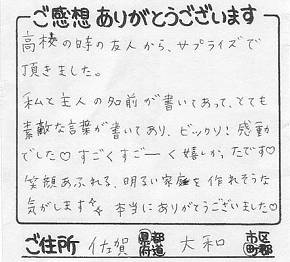 ご感想ありがとうございます
高校の時の友人から、サプライズで
頂きました。
私と主人の名前が書いてあって、とても
素敵な言葉が書いてあり、ビックリ!感動
でした♡すごくすごーく嬉しかったです♡
笑顔あふれる、明るい家庭を作れそうな
気がします✨本当にありがとうございました♡
ご住所 佐賀 都道府県 大和 市区町郡